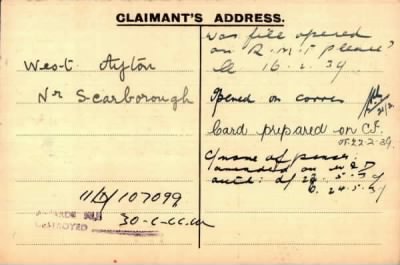 CLAIMANT'S ADDRESS.
West Ayton
Nr Scarborough
11/D/107099
30-C-CC.W
DESTROYED
was file opened
on R.M.T please?
16.2.39
Opened on corres
21/2
Card prepared on C.F.
of 22.2.39
c/name of
amended on
auth: d/ 22.5.39
24.5.39